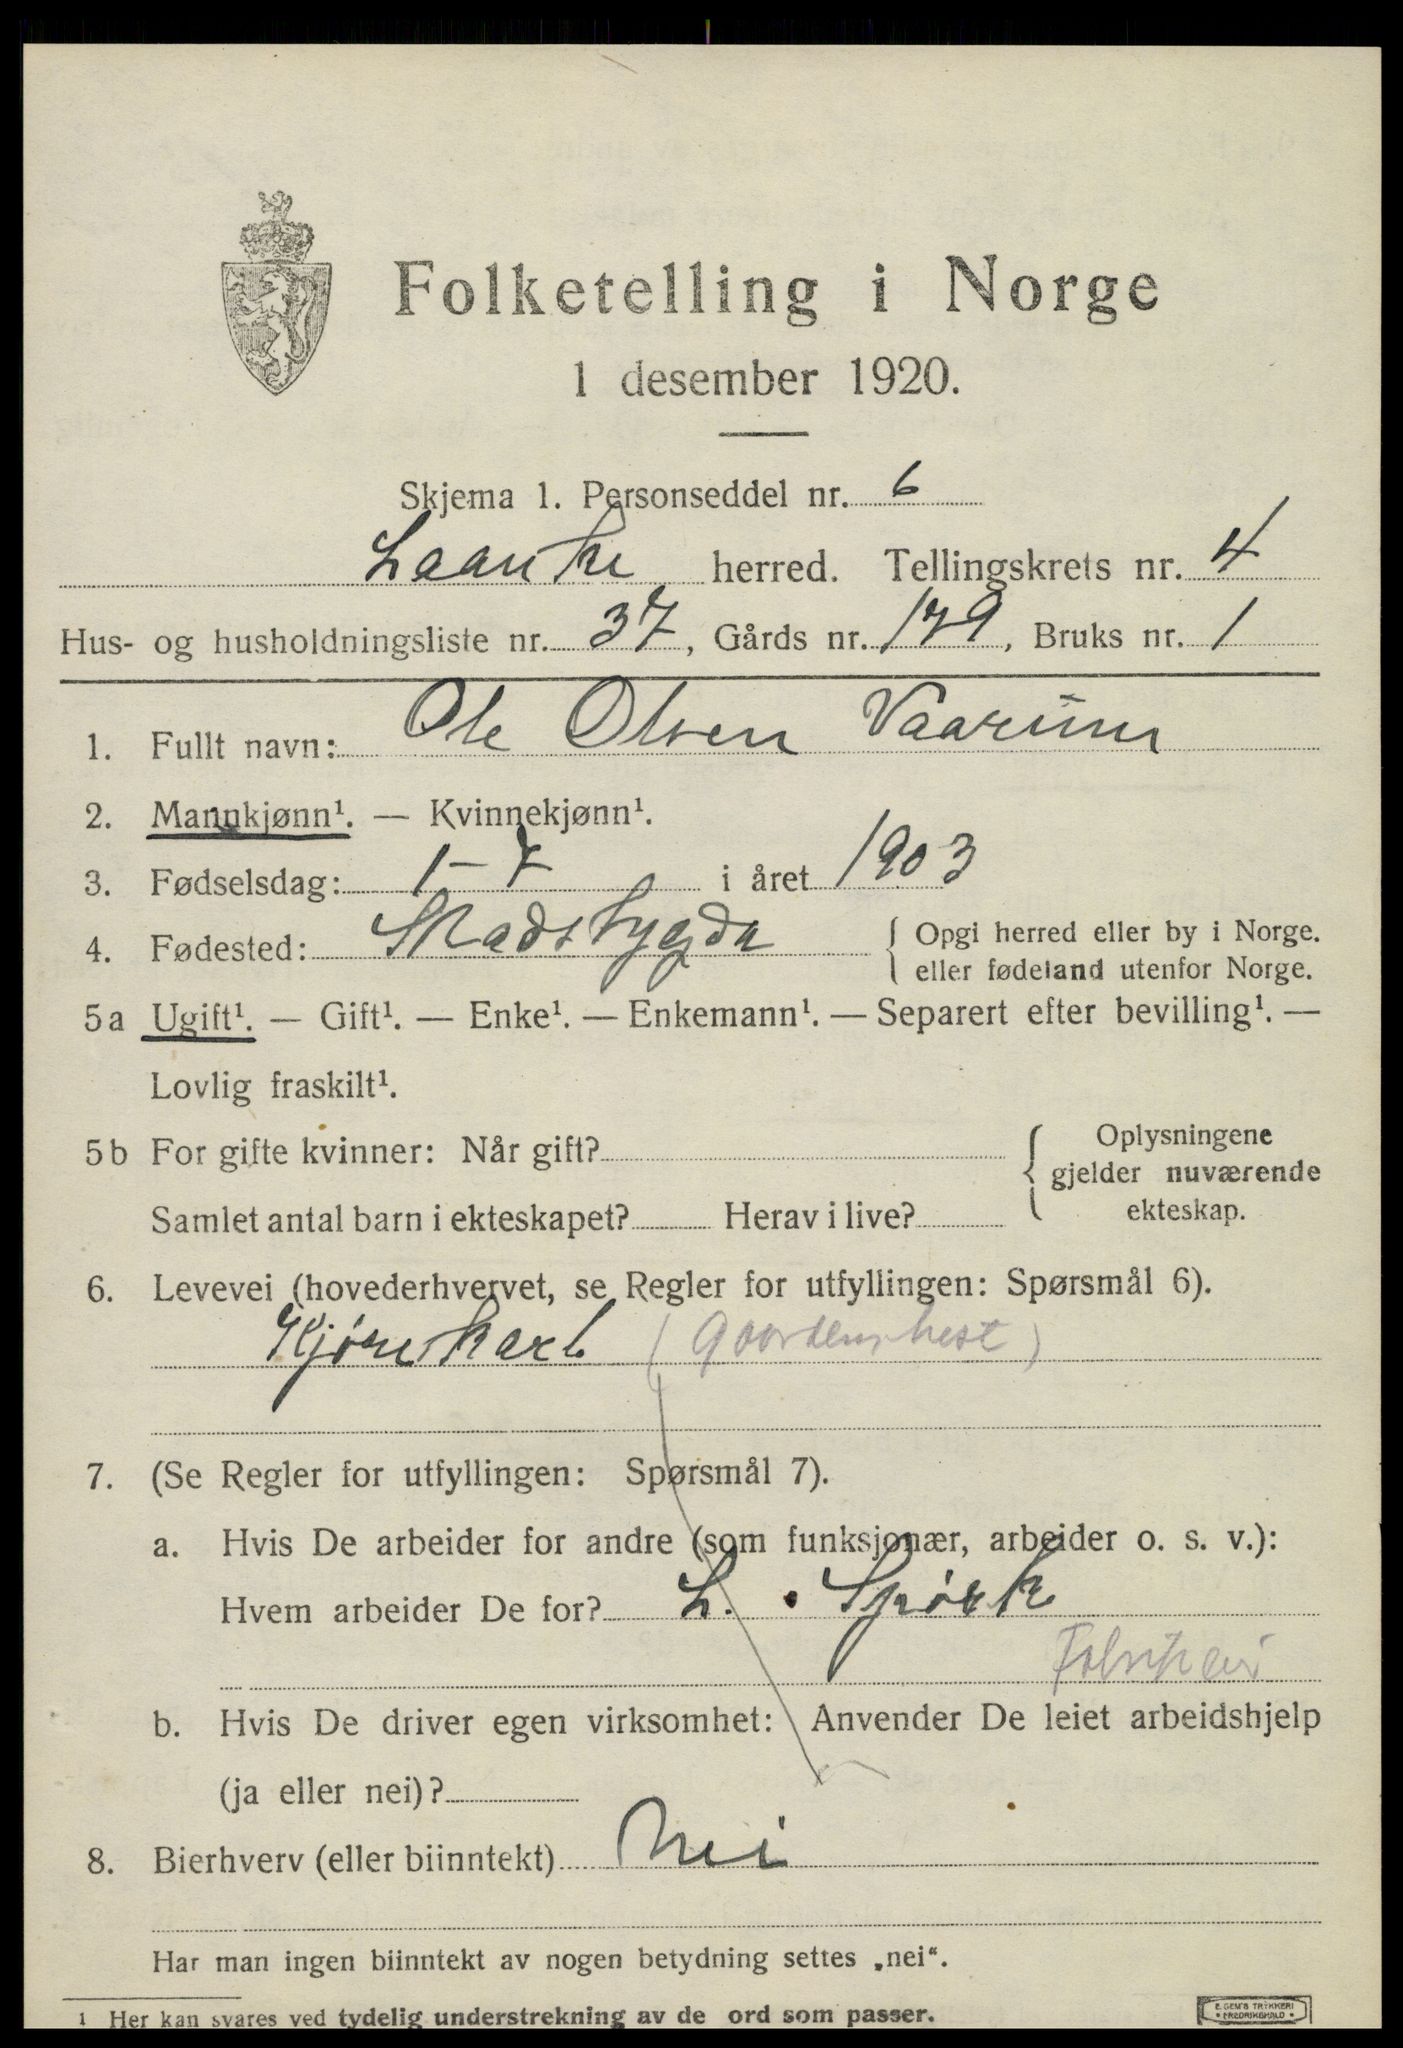 Folketelling i Norge
1 desember 1920.
Skjema 1. Personseddel nr. 6
Laanke herred. Tellingskrets nr. 4
Hus- og husholdningsliste nr. 37, Gårds nr. 179, Bruks nr. 1
1. Fullt navn: Ole Olsen Vaarum
2. Mannkjønn¹. — Kvinnekjønn¹.
3. Fødselsdag: 1-7 i året 1903
4. Fødested: Stadsbygda { Opgi herred eller by i Norge.
eller fødeland utenfor Norge.
5a Ugift¹. — Gift¹. — Enke¹. — Enkemann¹. — Separert efter bevilling¹. —
Lovlig fraskilt¹.
5b For gifte kvinner: Når gift?
Samlet antal barn i ekteskapet? Herav i live?
{ Oplysningene
gjelder nuværende
ekteskap.
6. Levevei (hovederhvervet, se Regler for utfyllingen: Spørsmål 6).
Kjørekarl (Gaardens hest)
7. (Se Regler for utfyllingen: Spørsmål 7).
a. Hvis De arbeider for andre (som funksjonær, arbeider o. s. v.):
Hvem arbeider De for? L. Spørck
b. Hvis De driver egen virksomhet: Anvender De leiet arbeidshjelp
(ja eller nei)?
8. Bierhverv (eller biinntekt) Nei
Har man ingen biinntekt av nogen betydning settes „nei“.
1 Her kan svares ved tydelig understrekning av de ord som passer.
E. GEM'S TRYKKERI
FREDRIKSHALD